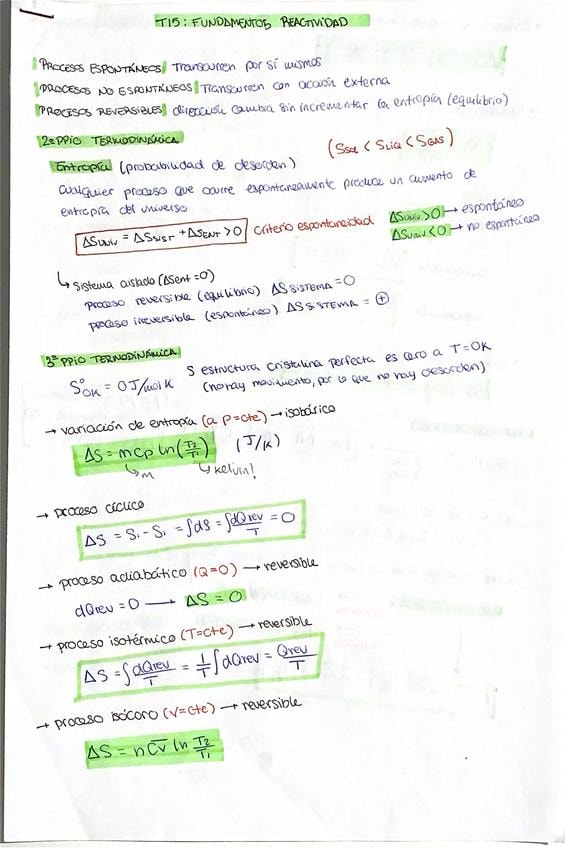 T15: FUNDAMENTOS REACTIVIDAD
PROCESOS ESPONTÁNEOS Transcurren por sí mismos
PROCESOS NO ESPONTÁNEOS Transcurren con acción externa
PROCESOS REVERSIBLES dirección cambia sin incrementar la entropía (equilibrio)
2º PPIO TERMODINÁMICA
Entropía (probabilidad de desorden) (Ssol < Sliq < Sgas)
Cualquier proceso que ocurre espontaneamente produce un aumento de
entropía del universo
ΔSuniv = ΔSsist + ΔSent > 0 Criterio espontaneidad ΔSuniv > 0 → espontáneo
ΔSuniv < 0 → no espontáneo
↳ Sistema aislado (ΔSent = 0)
proceso reversible (equilibrio) ΔSsistema = 0
proceso irreversible (espontáneo) ΔSsistema = ⊕
3er PPIO TERMODINÁMICA
S estructura cristalina perfecta es cero a T=0K
S°0K = 0 J/mol K (no hay movimiento, por lo que no hay desorden)
→ variación de entropía (a p=cte) → isobárico
ΔS = m cp ln(T2/T1) (J/K)
↳ m ↳ kelvin!
→ proceso cíclico
ΔS = Si - Si = ∫dS = ∫dQrev/T = 0
→ proceso adiabático (Q=0) → reversible
dQrev = 0 → ΔS = 0
→ proceso isotérmico (T=cte) → reversible
ΔS = ∫dQrev/T = 1/T ∫dQrev = Qrev/T
→ proceso isócoro (V=cte) → reversible
ΔS = n C̅v ln T2/T1